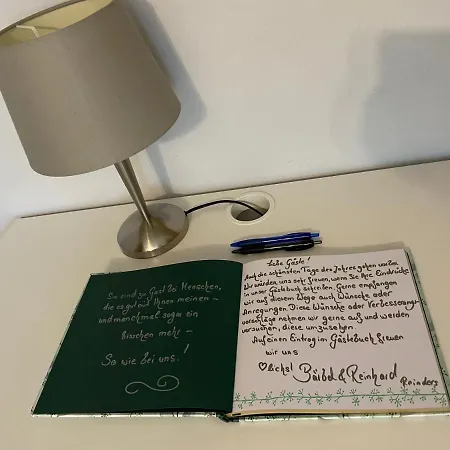 Sie sind zu Gast bei Menschen,
die es gut mit Ihnen meinen -
und manchmal sogar ein
bisschen mehr -
So wie bei uns!
Liebe Gäste!
Auch die schönsten Tage des Jahres gehen vorbei
Wir würden uns sehr freuen, wenn Sie Ihre Eindrücke
in unser Gästebuch schreiben. Gerne empfangen
wir auf diesem Wege auch Wünsche oder
Anregungen. Diese Wünsche oder Verbesserungs-
vorschläge nehmen wir gerne auf und werden
versuchen, diese umzusetzen.
Auf einen Eintrag im Gästebuch freuen
wir uns
Herzlichst Bärbel & Reinhard
Reinders